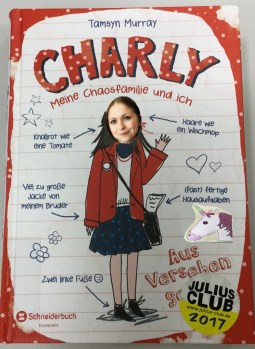 Tamsyn Murray
CHARLY
Meine Chaosfamilie und ich
Knallrot wie
eine Tomate
Haare wie
ein Wischmop
Viel zu große
Jacke von
meinem Bruder
(fast) fertige
Hausaufgaben
Zwei linke Füße
Aus
Versehen
Schneiderbuch
JULIUS
CLUB
www.julius-club.de
2017